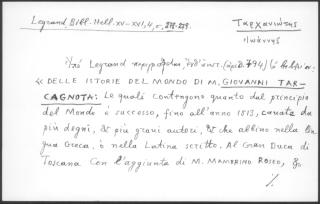 Legrand, Bibl. Hell. XV-XVI, 4, σ, 278-279.
Ταρχανιώτης
Ἰωάννης
Ὑπὸ Legrand περιγράφεται (ἀριθ. 794)
« DELLE ISTORIE DEL MONDO DI M. GIOVANNI TAR-
CAGNOTA: Le quali contengono quanto dal principio
del Mondo è successo, fino all'anno 1513, cavate da
più degni, & più gravi autori, & che abbino nella lin
gua Greca, ò nella Latina scritto. Al Gran Duca di
Toscana Con l'aggiunta di M. MAMBRINO ROSEO, &c.
./.